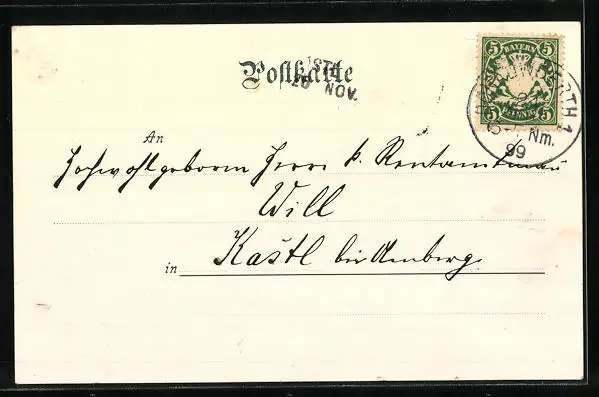 Postkarte
20 NOV.
5 BAYERN 5
5 PFENNIG 5
Nm.
99
An
Hochwohlgeborn Herrn k. Rentamtmann
Will
in Kastl bei Amberg.